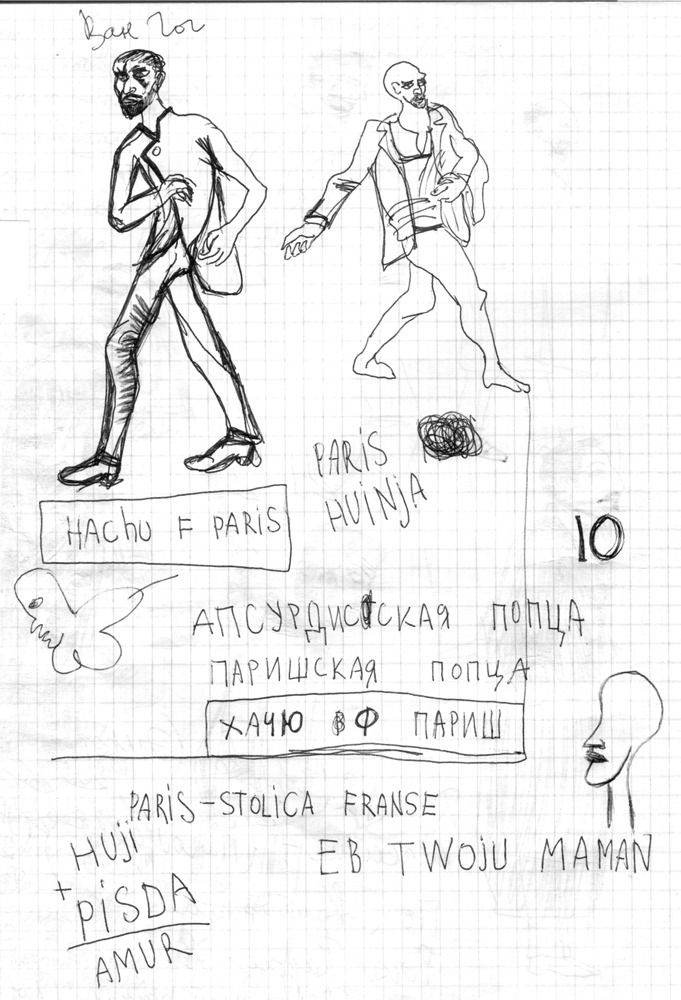 Ван Гог
PARIS
HUiNjA
HAchU F PARiS
10
АПСУРДИСТСКАЯ ПОПЦА
ПАРИШСКАЯ ПОПЦА
ХАЧЮ Ф ПАРИШ
PARiS-STOLiCA FRANSE
HUJi
+ PiSDA
AMUR
EB TWOJU MAMAN